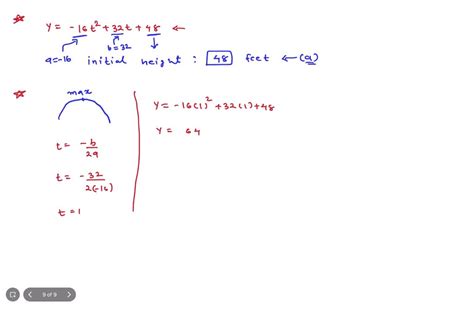 y = -16t² + 32t + 48 ←
a=-16 b=32 initial height : 48 feet ← (a)
max
t = -b/2a
t = -32/2(-16)
t = 1
y = -16(1)² + 32(1) + 48
y = 64
9 of 9